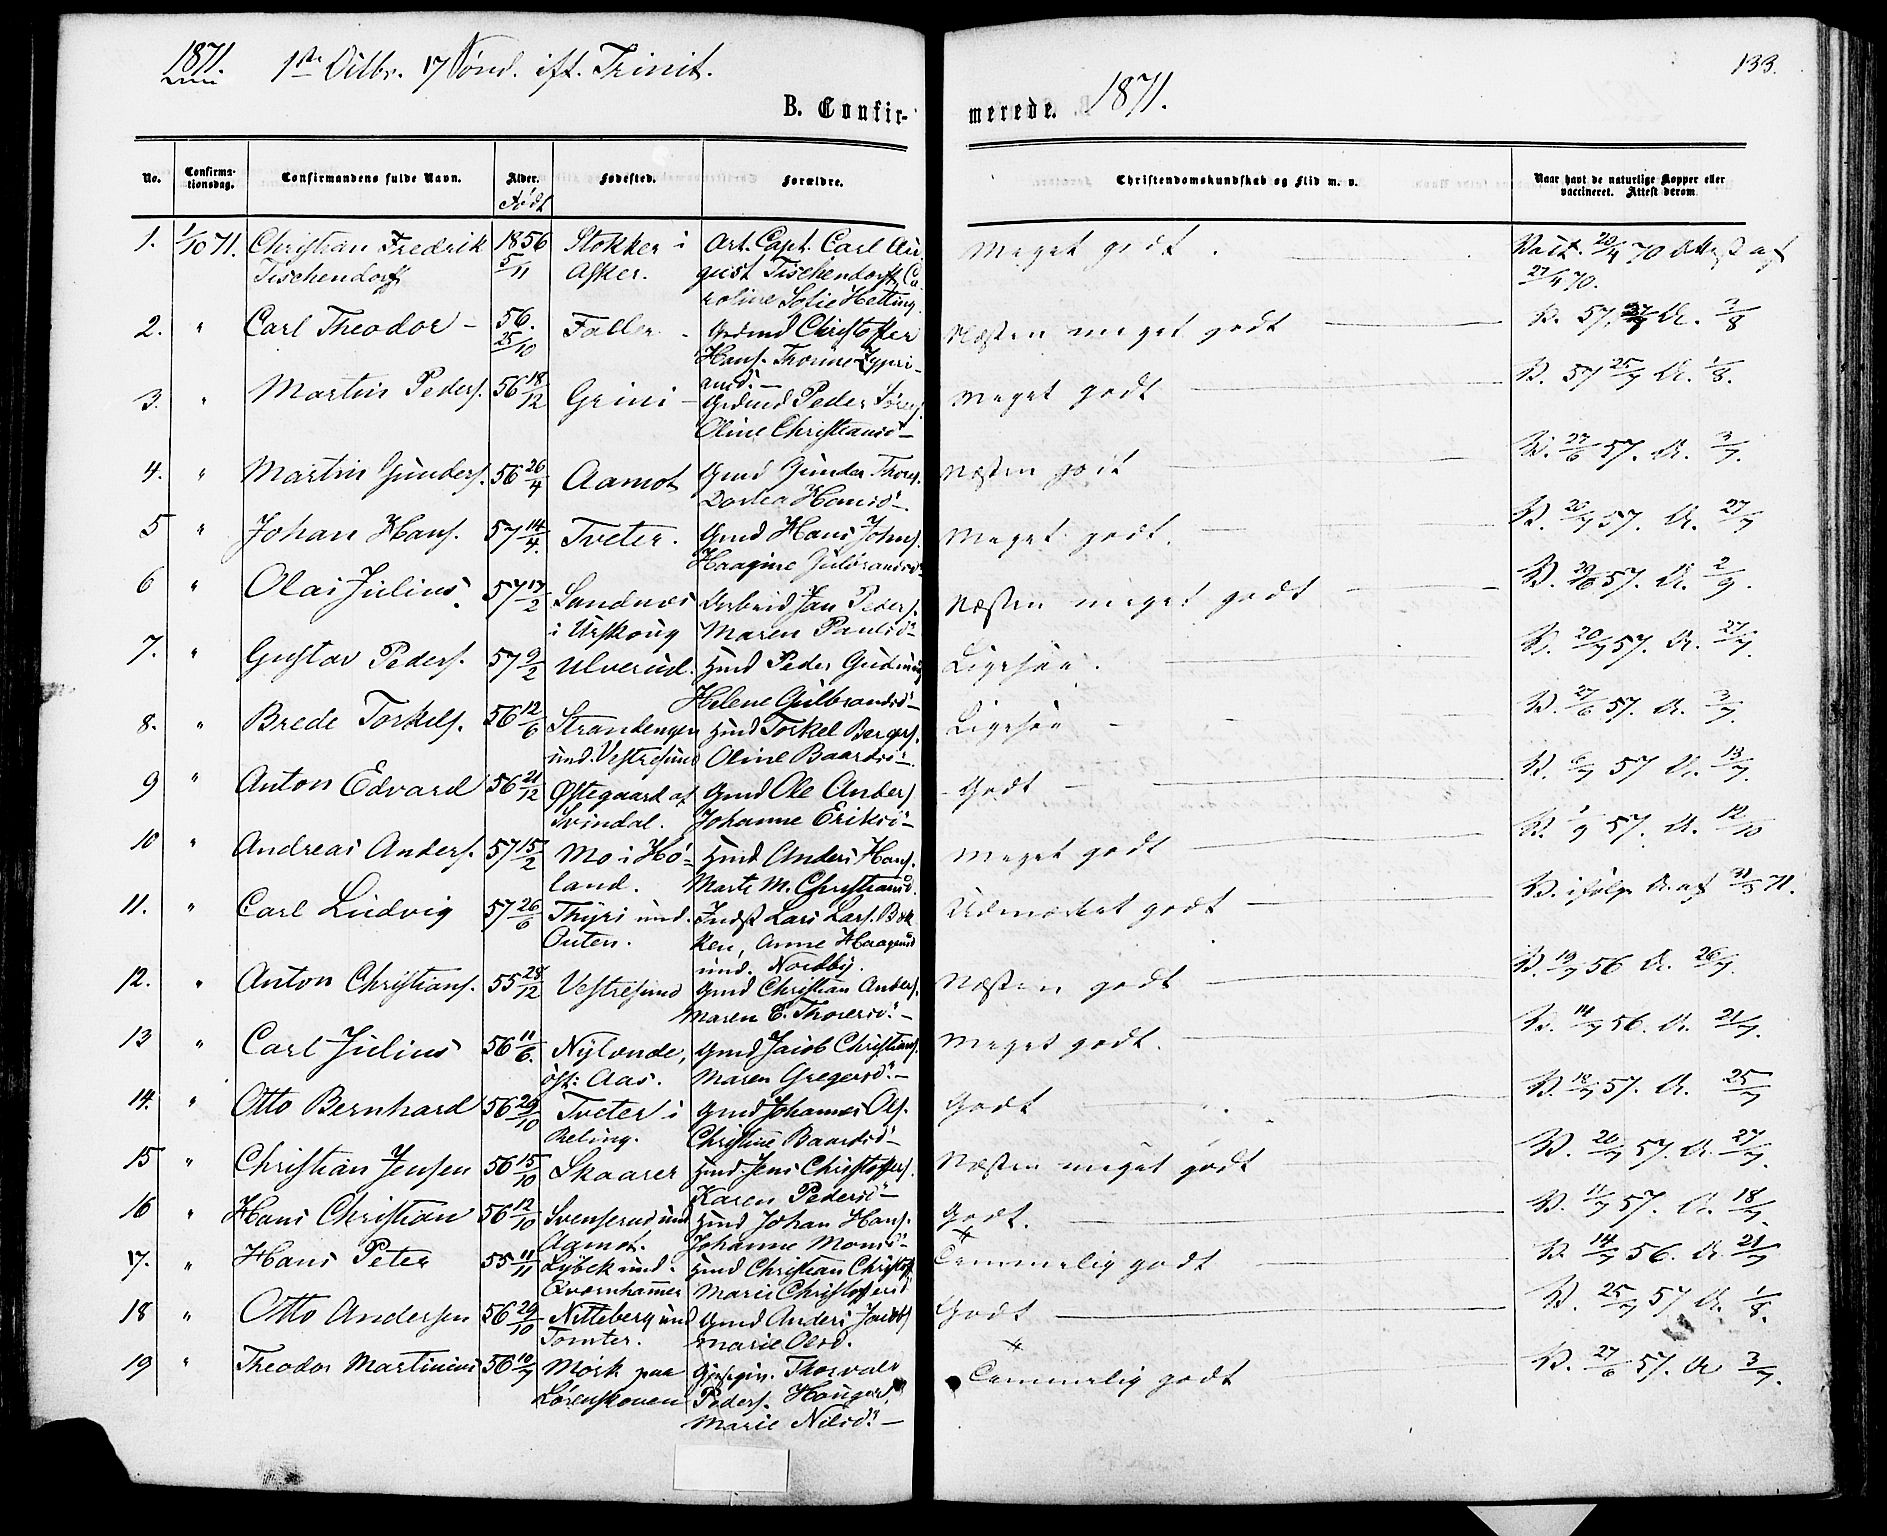 1871. 1ste Octbr. 17 Sønd. eft. Trinit.
B. Confirmerede. 1871.
133.
No. Confirmationsdag. Confirmandens fulde Navn. Alder. Født Fødested. Forældre. Christendomskundskab og Flid m. v. Naar havt de naturlige Kopper eller vaccineret. Attest derom.
1. 1/10 71. Christian Fredrik 1856 Stokker i Art. Capt. Carl Au- Meget godt. Vacc. 20/4 70 Attest af
Tischendorff 5/11 Asker. gust Tischendorff, Ca- 27/4 70.
roline Sofie Hetting
2. " Carl Theodor - 56. Faller - Grdmd Christoffer Næsten meget godt V. 57 A. 3/8
25/10 Hans. Thorine
3. " Martin Peders. 56 18/12 Grini - Grdmd Peder Sørens. Meget godt V. 57 25/7 A. 1/8.
Oline Christiansd -
4. " Martin Gunders. 56 26/4 Aamot Gmd Gunder Thors. Næsten godt V. 27/6 57. A. 3/7.
Dorthea Hansd -
5 " Johan Hans. 57 14/4. Tveter. Gmd Hans Johns. Meget godt. V. 20/7 57. A. 27/7
Haagine Gulbrandsd
6 " Olai Julius. 57 17/2 Sandnes Arbeid. Jan Peders. Næsten meget godt V. 29/6 57. A. 2/9.
i Urskoug Maren Paulsd -
7. " Gustav Peders. 57 9/2 Ulverud. Hmd Peder Gudmund Ligesaa. V. 20/7 57. A. 27/7.
Helene Gulbrandsd -
8. " Brede Torkels. 56 12/6 Strandengen Hmd Torkel Bergers. Ligesaa V. 27/6 57. A. 3/7.
und. Vestresund Oline Baardsd -
9 " Anton Edvard 56 21/12 Østegaard af Gmd Ole Anders Godt V. 6/7 57 A. 13/7.
Svindal. Johanne Eriksd -
10 " Andreas Anders. 57 15/2 Mo i Hø- Hmd Anders Hans. Meget godt V. 1/9 57. A. 12/10
land. Marte M. Christiansd.
11. " Carl Ludvig 57 26/6 Thyri und. Indst Lars Lars. Bæk- Udmærket godt V. ifølge A. af 31/3 71.
Outen. ken, Anne Haagensd
und. Nordby.
12. " Anton Christians. 55 28/12 Vestresund Gmd Christian Anders. Næsten godt V. 19/7 56 A. 26/7.
Maren E. Thoresd. -
13 " Carl Julius 56 11/6. Nylænde, Gmd Jacob Christians. Meget godt. V. 14/7 56. A. 21/7.
øst: Aas. Maren Gregersd. -
14. " Otto Bernhard 56 29/10 Tveter i Gmd Johannes Ols. Godt V. 18/7 57. A. 25/7
Reling. Christine Baardsd -
15 " Christian Jensen 56 15/10 Skaarer Hmd. Jens Christoffers. Næsten meget godt V. 20/7 57. A. 27/7.
Karen Pedersd -
16 " Hans Christian 56 12/10 Svenserud und Hmd Johan Hans. Godt. V. 11/7 57. A. 18/7.
Aamot. Johanne Monsd -
17. " Hans Peter 55 11/11 Lybek und. Hmd Christian Christoff. Temmelig godt V. 14/7 56. A. 21/7
Qvernhammer Marie Christoffersd
18 " Otto Andersen 56 29/10 Nitteberg und Gmd Anders Jacobs Godt V. 25/7 57 A. 1/8.
Tomter. Marie Olsd.
19 " Theodor Martinius 56 10/7 Mørk paa Thorvald Temmelig godt V. 27/6 57. A 3/7.
Lørenskoven Peders. Hauger,
Marie Nilsd. -